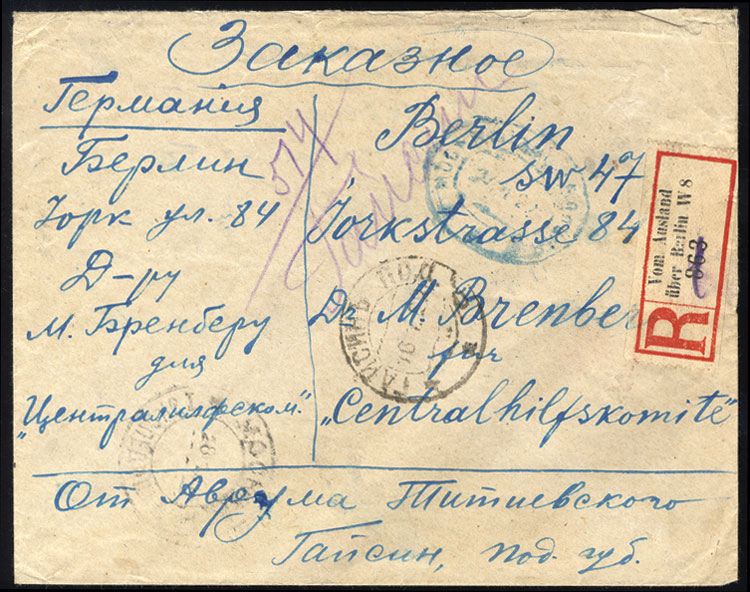 Заказное
Германія
Берлин
Іорк ул. 84
Д-ру
М. Бренберу
для
"Централилфском."
514
Berlin
SW 47
Jorkstrasse 84
Dr M Brenber
für
"Centralhilfskomite"
Vom Ausland
über Berlin W 8
963
R
ГАЙСИНЪ ПОД
От Аврума Титиевского
Гайсин, под. губ.